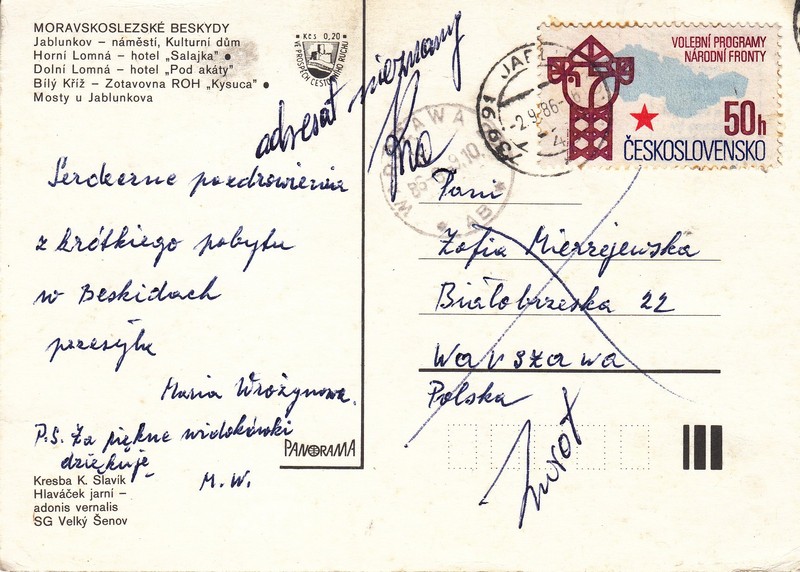 MORAVSKOSLEZSKÉ BESKYDY
Jablunkov – náměstí, Kulturní dům
Horní Lomná – hotel „Salajka" ●
Dolní Lomná – hotel „Pod akáty"
Bílý Kříž – Zotavovna ROH „Kysuca" ●
Mosty u Jablunkova
Kčs 0,20
VE PROSPĚCH CESTOVNÍHO RUCHU
adresat nieznany
VOLEBNÍ PROGRAMY
NÁRODNÍ FRONTY
50h
ČESKOSLOVENSKO
739 91
-2.9.86
WARSZAWA
AB
Serdeczne pozdrowienia
z krótkiego pobytu
w Beskidach
przesyła
Maria Wrożynowa.
P.S. Za piękne widokówki
dziękuję
M.W.
Pani
Zofia Mierzejewska
Białobrzeska 22
Warszawa
Polska
zwrot
PANORAMA
Kresba K. Slavík
Hlaváček jarní –
adonis vernalis
SG Velký Šenov